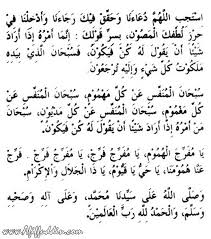 اسْتَجِبِ اللَّهُمَّ دُعَاءَنَا وَحَقِّقْ فِيكَ رَجَاءَنَا وَأَدْخِلْنَا فِي
حِرْزِ لُطْفِكَ الْمَصُونِ، بِسِرِّ قَوْلِكَ : إِنَّمَا أَمْرُهُ إِذَا أَرَادَ
شَيْئًا أَنْ يَقُولَ لَهُ كُنْ فَيَكُونُ، فَسُبْحَانَ الَّذِي بِيَدِهِ
مَلَكُوتُ كُلِّ شَيْءٍ وَإِلَيْهِ تُرْجَعُونَ.
سُبْحَانَ الْمُنَفِّسِ عَنْ كُلِّ مَهْمُومٍ، سُبْحَانَ الْمُنَفِّسِ عَنْ
كُلِّ مَغْمُومٍ، سُبْحَانَ الْمُنَفِّسِ عَنْ كُلِّ مَدْيُونٍ، سُبْحَانَ
مَنْ أَمْرُهُ إِذَا أَرَادَ شَيْئًا أَنْ يَقُولَ لَهُ كُنْ فَيَكُونُ.
يَا مُفَرِّجَ الْهُمُومِ، يَا مُفَرِّجُ فَرِّجْ، يَا مُفَرِّجُ فَرِّجْ، فَرِّجْ
عَنَّا هُمُومَنَا، يَا حَيُّ يَا قَيُّومُ، يَا ذَا الْجَلَالِ وَالْإِكْرَامِ.
وَصَلَّى اللهُ عَلَى سَيِّدِنَا مُحَمَّدٍ، وَعَلَى آلِهِ وَصَحْبِهِ
وَسَلَّمَ، وَالْحَمْدُ لِلَّهِ رَبِّ الْعَالَمِينَ.